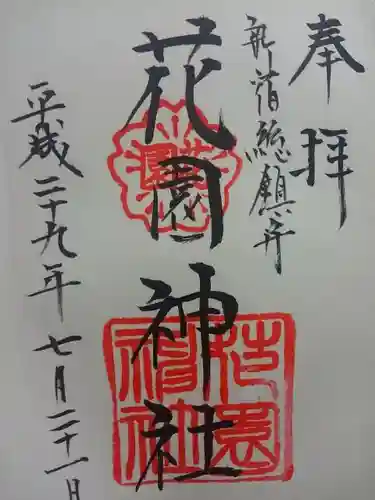 奉拝
新宿總鎮守
花園神社
平成二十九年七月二十一日
花園
神社